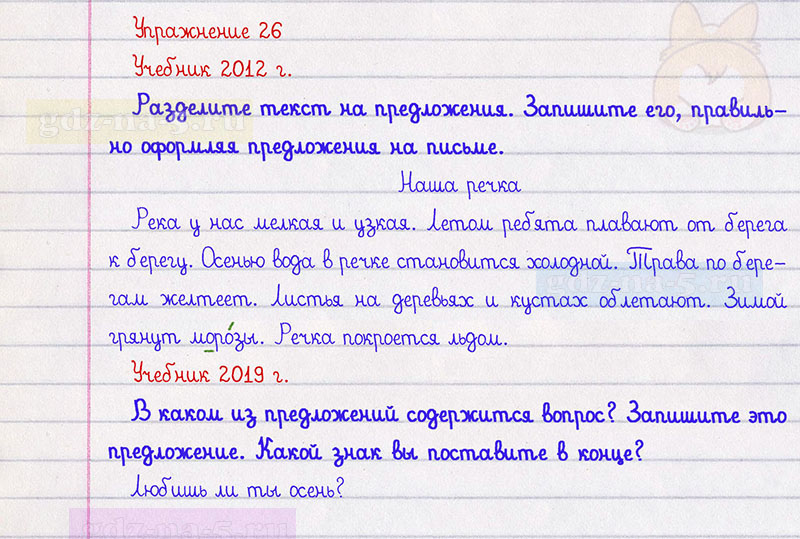 Упражнение 26
Учебник 2012 г.
Разделите текст на предложения. Запишите его, правиль-
но оформляя предложения на письме.
gdz-na-5.ru
Наша речка
Река у нас мелкая и узкая. Летом ребята плавают от берега
к берегу. Осенью вода в речке становится холодной. Трава по бере-
гам желтеет. Листья на деревьях и кустах облетают. Зимой
gdz-na-5.ru
грянут морозы. Речка покроется льдом.
Учебник 2019 г.
В каком из предложений содержится вопрос? Запишите это
предложение. Какой знак вы поставите в конце?
Любишь ли ты осень?
gdz-na-5.ru